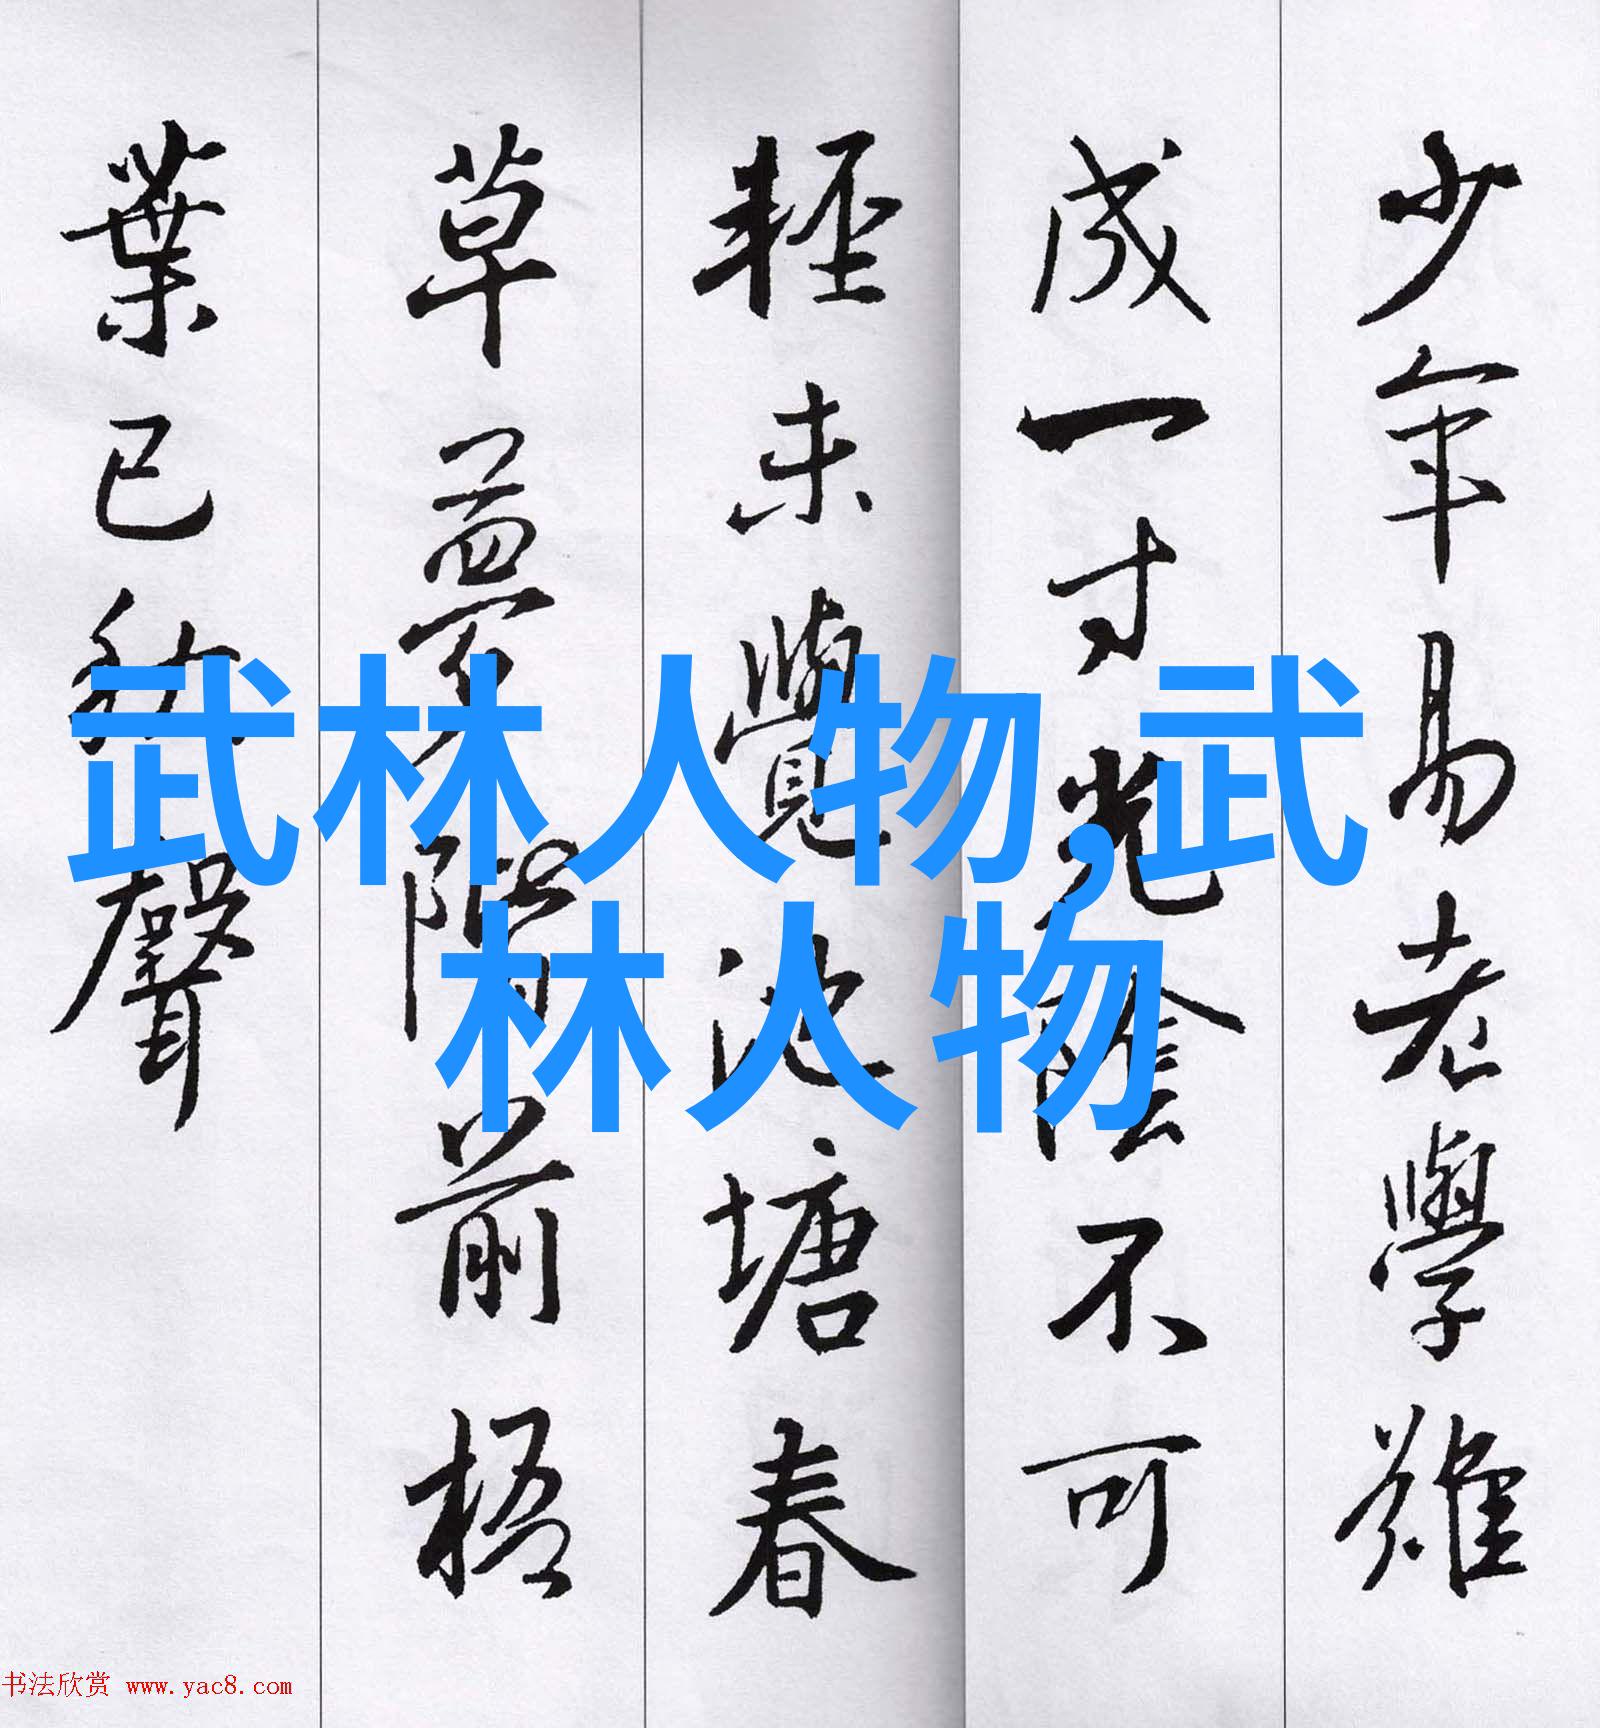 少年易老學難
成一寸光陰不可
輕未覺池塘春
草夢階前梧
葉已秋聲
武林人物,武
林人物
书法欣赏 www.yac8.com